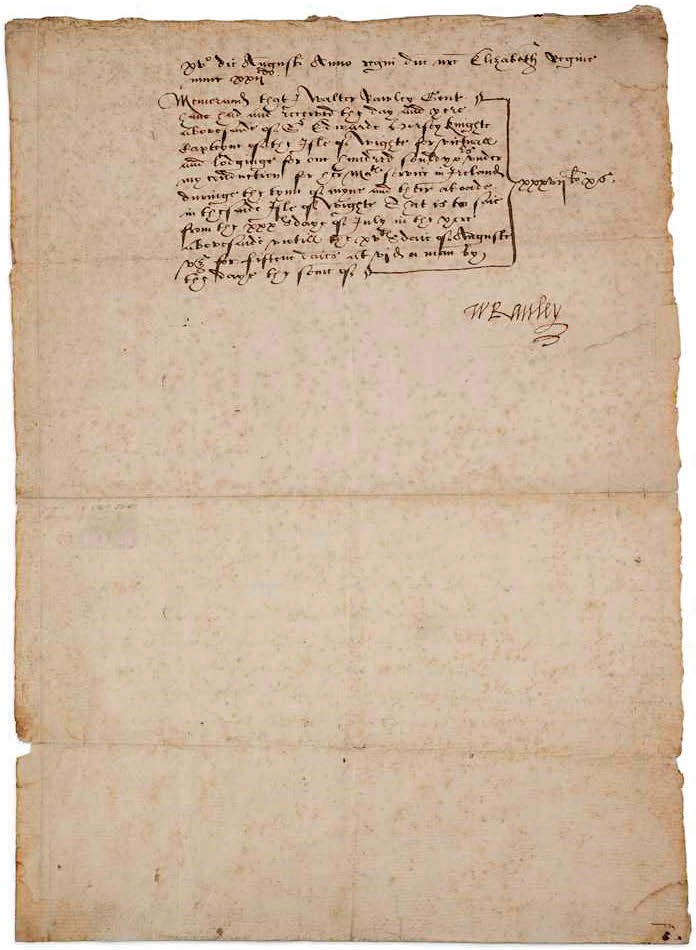 xvº die Augusti Anno regni dne nre Elizabeth Regine
nunc xxijdo
Memorand that I Walter Rawley Gent
have had and receved the day and yere
abovesaide of Sr Edwarde Horsey knighte
Capteyne of the Isle of Wighte for victuall
and lodginge for one hundred souldyors under
my conduction for her Mats service in Ireland
duringe the tyme of myne and their aboade
in the saide Isle of Wighte That is to saie
from the xxxth daye of July in the yere
abovesaide untill the xvth daie of Auguste
viz for fiftene daies at vjd a man by
the daye the some of
xxxvijli xs.
W Rauley
6.